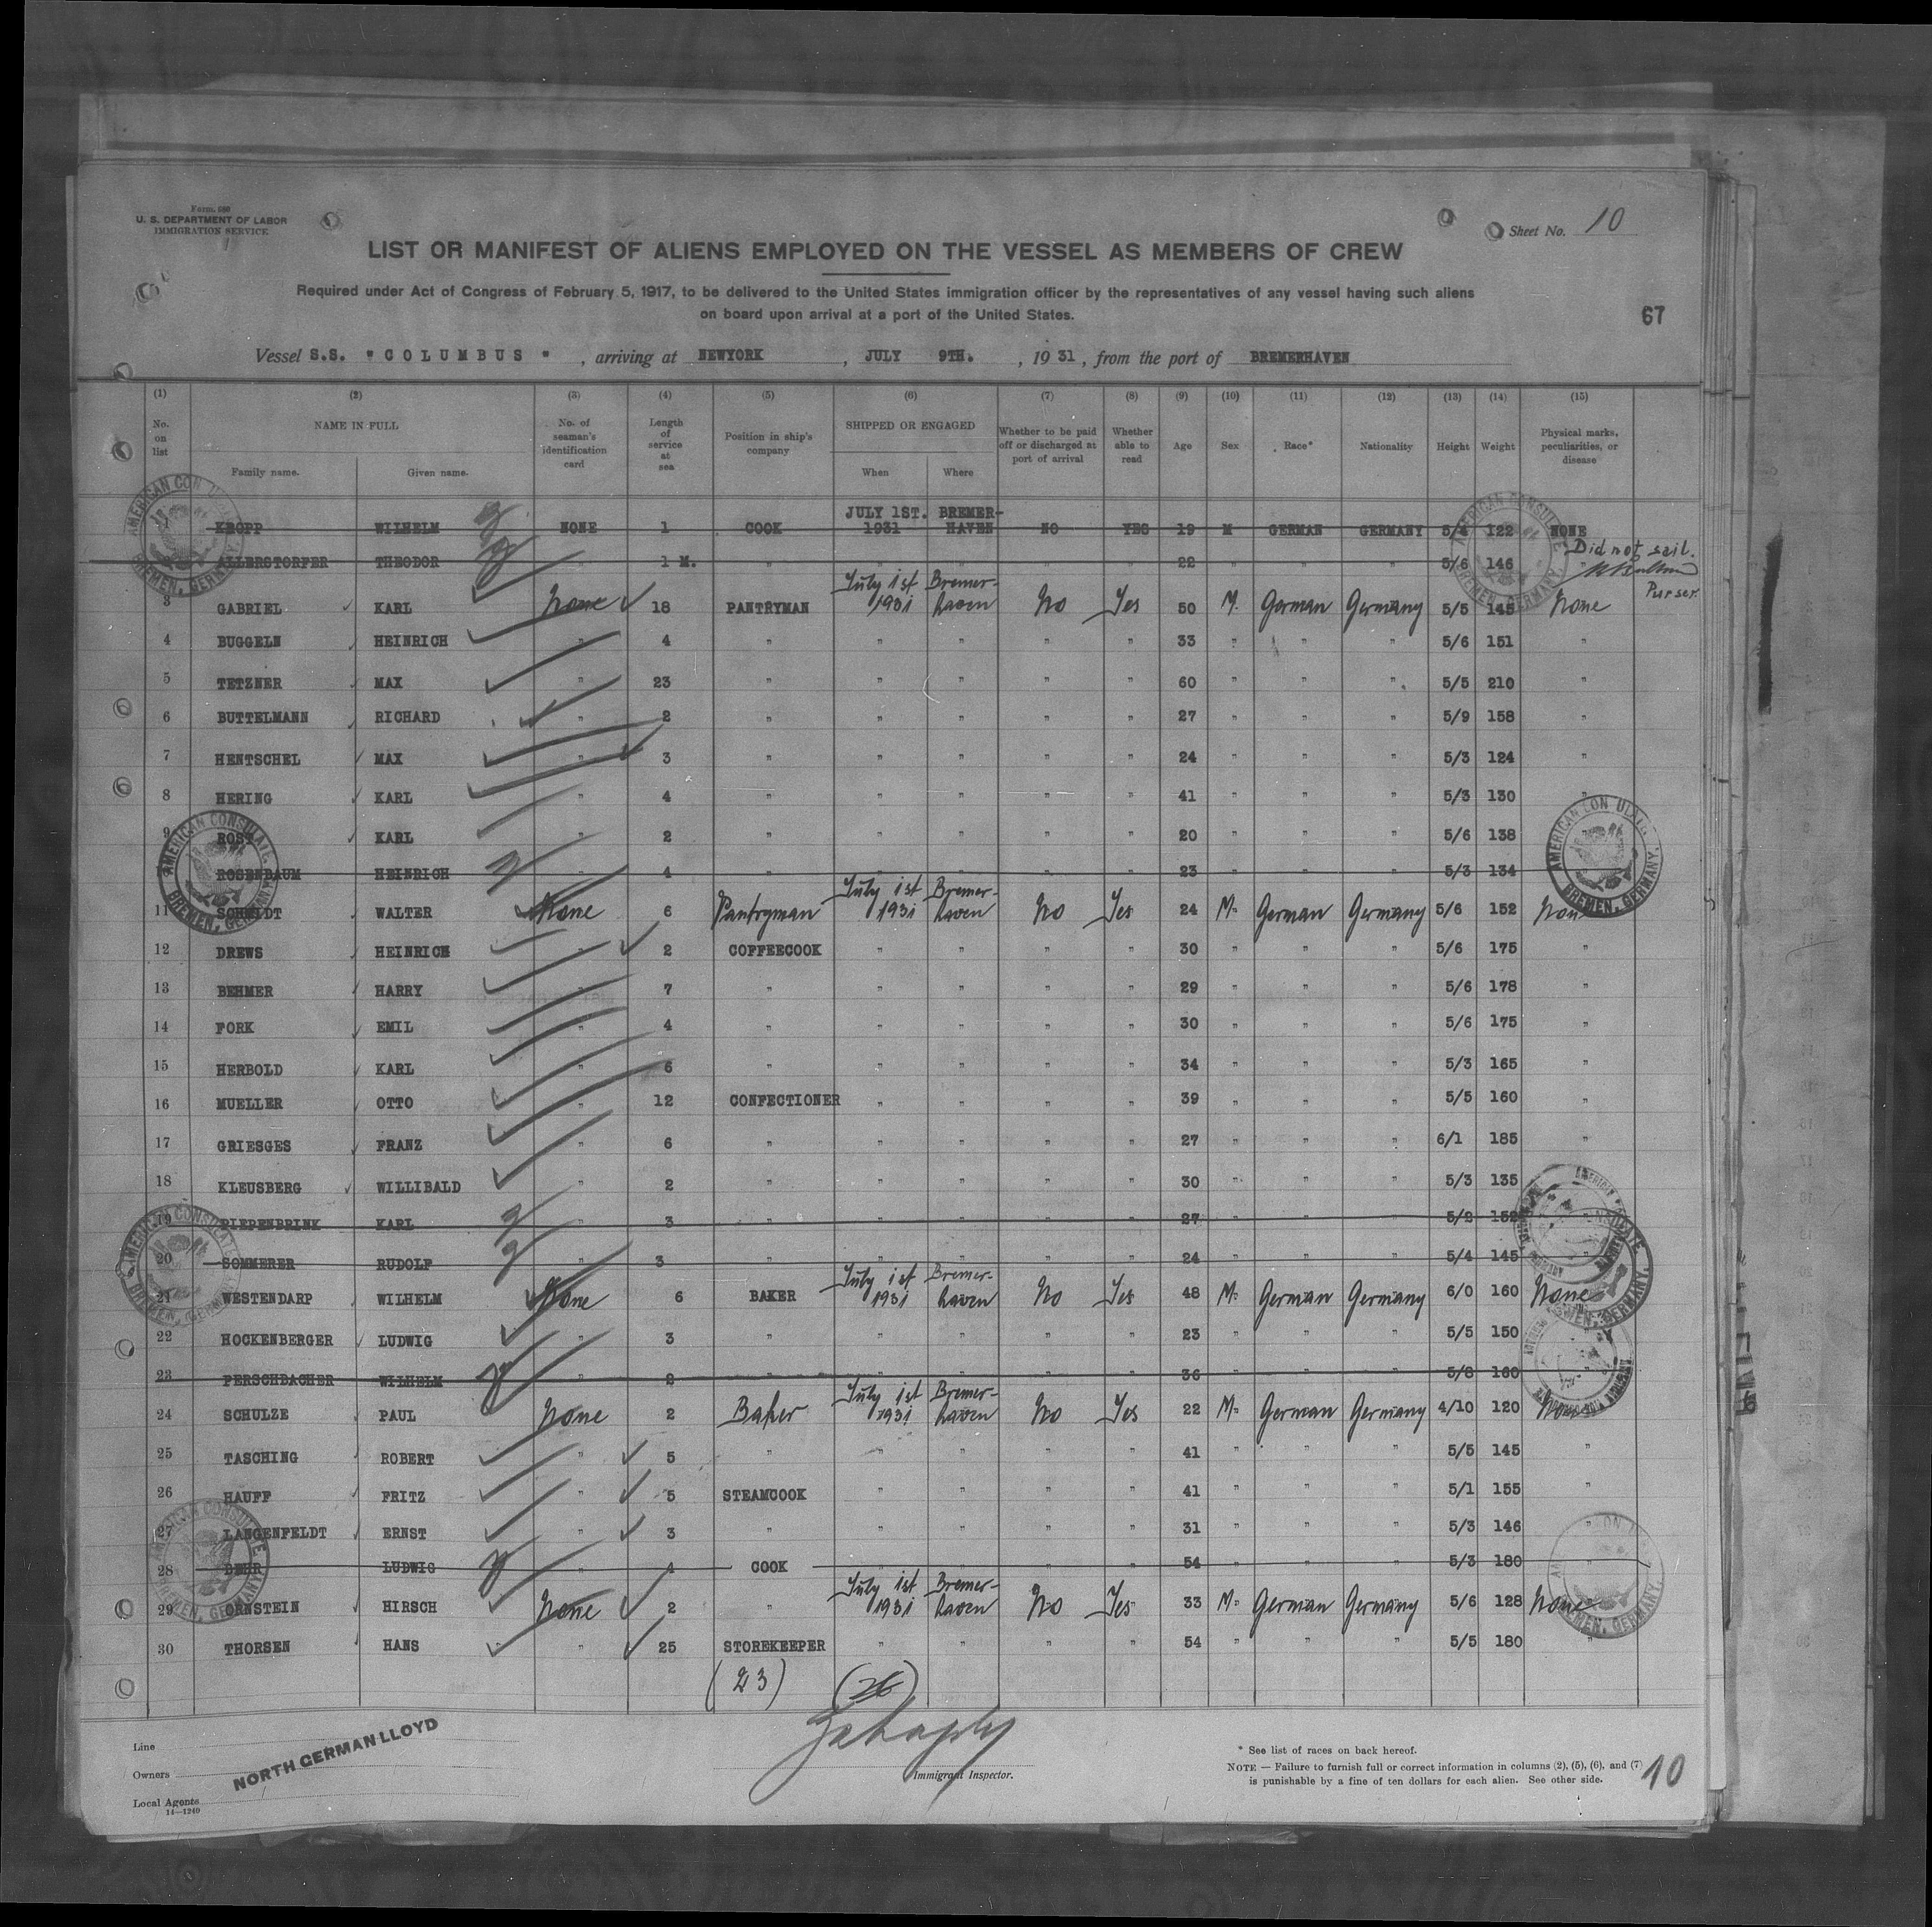 Form 680
U. S. DEPARTMENT OF LABOR
IMMIGRATION SERVICE
Sheet No. 10
LIST OR MANIFEST OF ALIENS EMPLOYED ON THE VESSEL AS MEMBERS OF CREW
Required under Act of Congress of February 5, 1917, to be delivered to the United States immigration officer by the representatives of any vessel having such aliens
on board upon arrival at a port of the United States.
67
Vessel S.S. "COLUMBUS", arriving at NEWYORK, JULY 9TH., 1931, from the port of BREMERHAVEN
(1) (2) (3) (4) (5) (6) (7) (8) (9) (10) (11) (12) (13) (14) (15)
No. on list NAME IN FULL Family name. Given name. No. of seaman's identification card Length of service at sea Position in ship's company SHIPPED OR ENGAGED When Where Whether to be paid off or discharged at port of arrival Whether able to read Age Sex Race* Nationality Height Weight Physical marks, peculiarities, or disease
1 KROPP WILHELM NONE 1 COOK JULY 1ST. 1931 BREMER-HAVEN NO YES 19 M GERMAN GERMANY 5/4 122 NONE
ALLERSTORFER THEODOR " 1 M. " " " " " 22 " " " 5/6 146 " Did not sail.
Purser.
3 GABRIEL KARL None 18 PANTRYMAN July 1st 1931 Bremer-haven No Yes 50 M. German Germany 5/5 145 None
4 BUGGELN HEINRICH " 4 " " " " " 33 " " " 5/6 151 "
5 TETZNER MAX " 23 " " " " " 60 " " " 5/5 210 "
6 BUTTELMANN RICHARD " 2 " " " " " 27 " " " 5/9 158 "
7 HENTSCHEL MAX " 3 " " " " " 24 " " " 5/3 124 "
8 HERING KARL " 4 " " " " " 41 " " " 5/3 130 "
9 ROST KARL " 2 " " " " " 20 " " " 5/6 138 "
ROSENBAUM HEINRICH " 4 " " " " " 23 " " " 5/3 134 "
11 SCHMIDT WALTER None 6 Pantryman July 1st 1931 Bremer-haven No Yes 24 M. German Germany 5/6 152 None
12 DREWS HEINRICH " 2 COFFEECOOK " " " " 30 " " " 5/6 175 "
13 BEHMER HARRY " 7 " " " " " 29 " " " 5/6 178 "
14 FORK EMIL " 4 " " " " " 30 " " " 5/6 175 "
15 HERBOLD KARL " 6 " " " " " 34 " " " 5/3 165 "
16 MUELLER OTTO " 12 CONFECTIONER " " " " 39 " " " 5/5 160 "
17 GRIESGES FRANZ " 6 " " " " " 27 " " " 6/1 185 "
18 KLEUSBERG WILLIBALD " 2 " " " " " 30 " " " 5/3 135 "
19 PIEPENBRINK KARL " 3 " " " " " 27 " " " 5/2 152 "
20 SOMMERER RUDOLF " 3 " " " " " 24 " " " 5/4 145 "
21 WESTENDARP WILHELM None 6 BAKER July 1st 1931 Bremer-haven No Yes 48 M. German Germany 6/0 160 None
22 HOCKENBERGER LUDWIG " 3 " " " " " 23 " " " 5/5 150 "
23 PERSCHBACHER WILHELM " 2 " " " " " 36 " " " 5/8 160 "
24 SCHULZE PAUL None 2 Baker July 1st 1931 Bremer-haven No Yes 22 M. German Germany 4/10 120 None
25 TASCHING ROBERT " 5 " " " " " 41 " " " 5/5 145 "
26 HAUFF FRITZ " 5 STEAMCOOK " " " " 41 " " " 5/1 155 "
27 LANGENFELDT ERNST " 3 " " " " " 31 " " " 5/3 146 "
28 BEHR LUDWIG " 4 COOK " " " " 54 " " " 5/3 180 "
29 ORNSTEIN HIRSCH None 2 " July 1st 1931 Bremer-haven No Yes 33 M. German Germany 5/6 128 None
30 THORSEN HANS " 25 STOREKEEPER " " " " 54 " " " 5/5 180 "
(23) (26)
AMERICAN CONSULATE BREMEN, GERMANY.
Line
Owners
NORTH GERMAN LLOYD
Local Agents
14—1240
Immigrant Inspector.
* See list of races on back hereof.
NOTE — Failure to furnish full or correct information in columns (2), (5), (6), and (7)
is punishable by a fine of ten dollars for each alien. See other side.
10